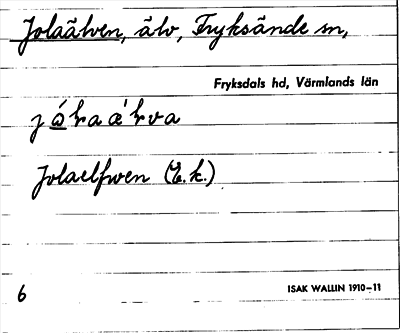 Jolaälven, älv, Fryksände sn,
Fryksdals hd, Värmlands län
Jolaelfwen
6
ISAK WALLIN 1910-11